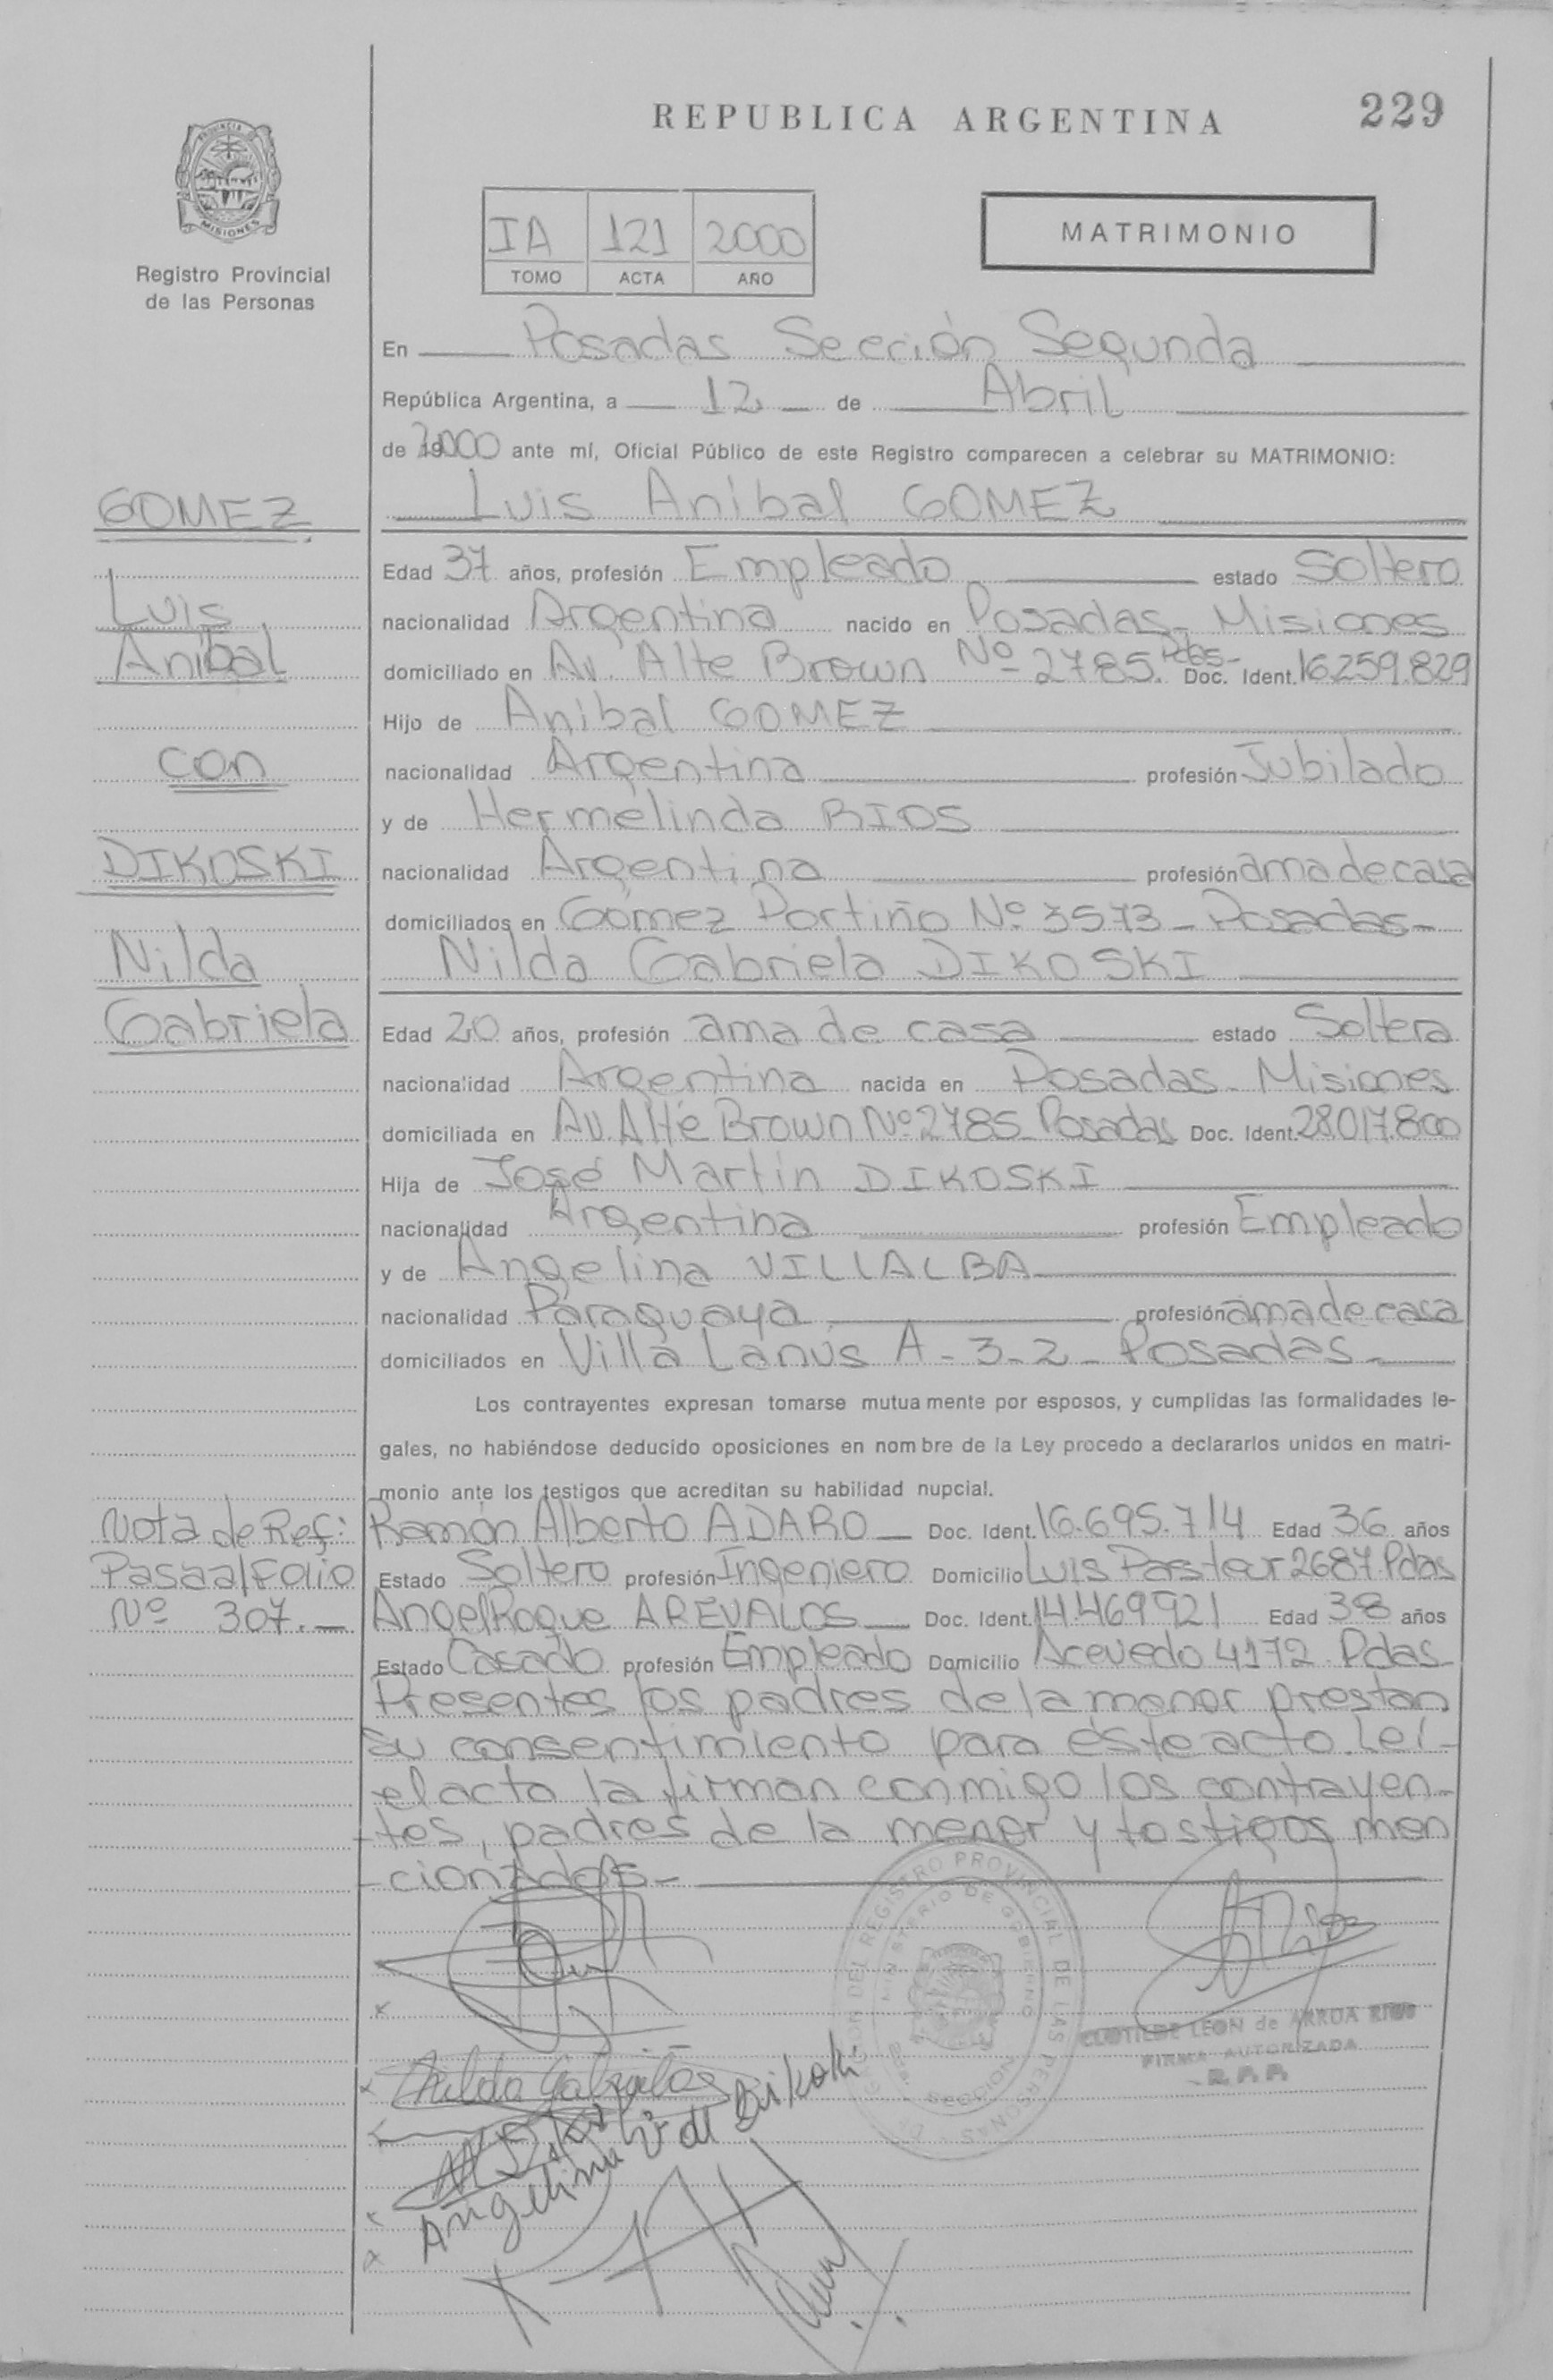 REPUBLICA ARGENTINA
229
PROVINCIA DE
MISIONES
Registro Provincial
de las Personas
IA 121 2000
TOMO ACTA AÑO
MATRIMONIO
En Posadas Sección Segunda
República Argentina, a 12 de Abril
de 2000 ante mí, Oficial Público de este Registro comparecen a celebrar su MATRIMONIO:
GOMEZ
Luis
Anibal
con
DIKOSKI
Nilda
Gabriela
Luis Anibal GOMEZ
Edad 37 años, profesión Empleado estado Soltero
nacionalidad Argentina nacido en Posadas - Misiones
domiciliado en Av. Alte Brown Nº 2785. Pdas- Doc. Ident. 16.259.829
Hijo de Anibal GOMEZ
nacionalidad Argentina profesión Jubilado
y de Hermelinda RIOS
nacionalidad Argentina profesión ama de casa
domiciliados en Gómez Portiño Nº 3573 - Posadas -
Nilda Gabriela DIKOSKI
Edad 20 años, profesión ama de casa estado Soltera
nacionalidad Argentina nacida en Posadas - Misiones
domiciliada en Av. Alte Brown Nº 2785 Posadas Doc. Ident. 28.017.800
Hija de José Martin DIKOSKI
nacionalidad Argentina profesión Empleado
y de Angelina VILLALBA
nacionalidad Paraguaya profesión ama de casa
domiciliados en Villa Lanús A - 3 - 2 - Posadas -
Los contrayentes expresan tomarse mutuamente por esposos, y cumplidas las formalidades le-
gales, no habiéndose deducido oposiciones en nombre de la Ley procedo a declararlos unidos en matri-
monio ante los testigos que acreditan su habilidad nupcial.
Nota de Ref:
Pasa al Folio
Nº 307.-
Ramón Alberto ADARO Doc. Ident. 16.695.714 Edad 36 años
Estado Soltero profesión Ingeniero Domicilio Luis Pasteur 2687 Pdas
Angel Roque AREVALOS Doc. Ident. 14.469921 Edad 38 años
Estado Casado profesión Empleado Domicilio Acevedo 4172 Pdas
Presentes los padres de la menor prestan
su consentimiento para éste acto. Lei-
el acta la firman conmigo los contrayen-
-tes, padres de la menor y testigos men
-cionados-
REGISTRO PROVINCIAL DE LAS PERSONAS
MINISTERIO DE GOBIERNO
SECCION
CLOTILDE LEON de ARRUA RIOS
FIRMA AUTORIZADA
R. P. P.
Nilda Gabriela
Angelina V de Dikoski